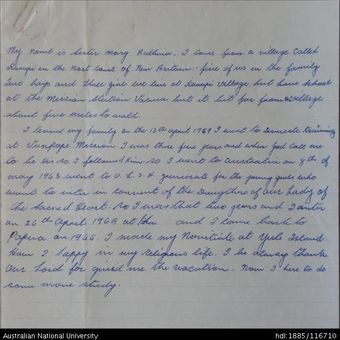 My name is Sister Mary Kathrine, I come from a village called
in the North Coast of New Britain. five of us in the family
two boys and three girl we live at village, but have school
at the Mission Station Vunua but it bit far from village
about five miles to walk.
I leaved my family on the 12th April 1959 I went to Domestic training
at Vunapope Mission I was there five years and when God call me
to be his so I followed him, so I went to Australia on 8th of
may 1963, went to O.L.S.H juniorate for the young girls who
want to enter in convent of the Daughters of Our Lady of
the Sacred Heart. so I was that two years and I enter
on 26th April 1965 at the and I come back to
Papua on 1966. I made my Novitiate at Yule Island
Have I happy in my religious life. I be always thanks
Our Lord for guid me the vocation. Now I here to do
some more study.
Australian National University
hdl:1885/116710